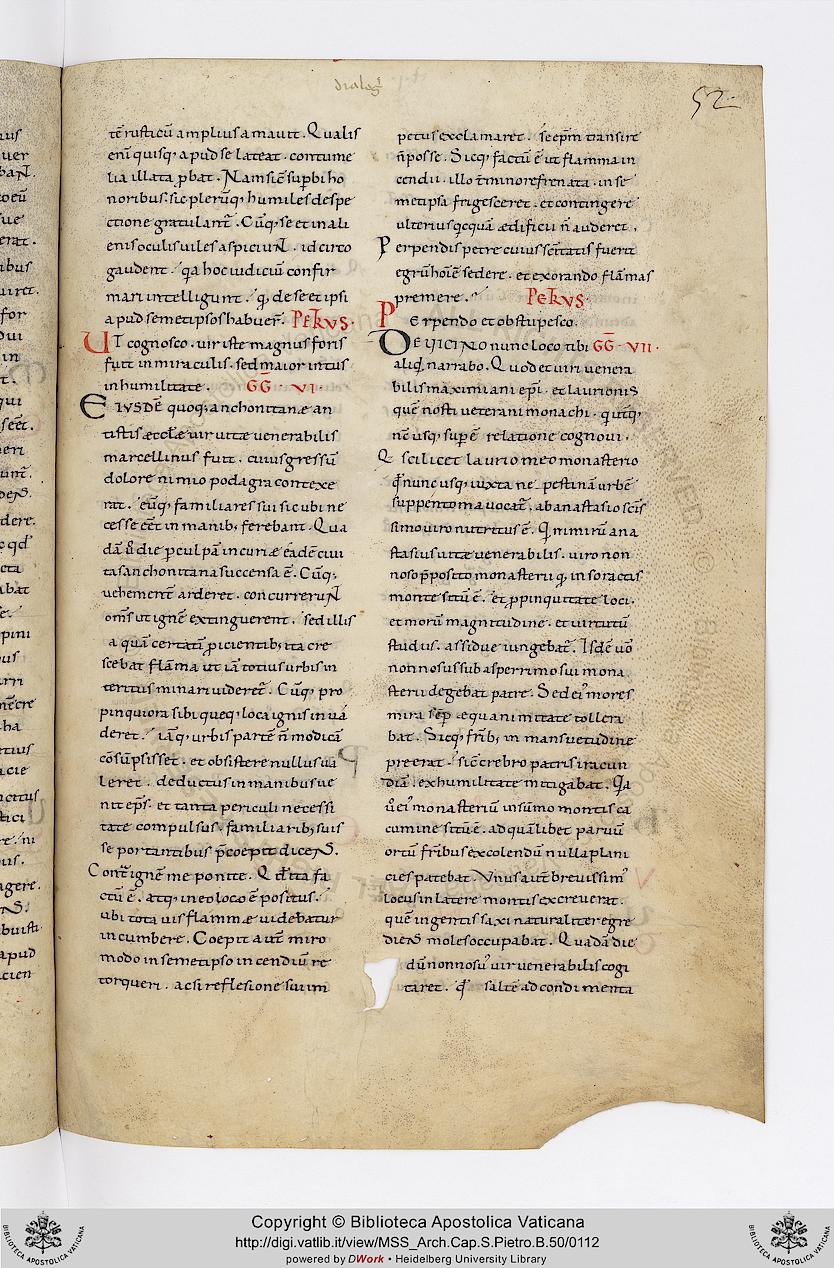 dialog̃
52
tē rusticū amplius amavit. Qualis
eni quisq; apud se lateat. contume
lia illata ꝓbat. Nam sicū suꝑbi ho
noribus. sic plerūq; humiles despe
ctione gratulant̃. Cūq; se et in ali
enis oculis viles aspiciunt. idcirco
gaudent. qa hoc iudiciū confir
mari intelligunt. qđ de se et ipsi
apud semetipsos habuer̃. Petrus.
Ut cognosco. vir iste magnus foris
fuit in miraculis. sed maior intus
in humilitate. GḠ. VI.
Eiusdē quoq; anchonitanæ an
tistis æccłe vir vitæ venerabilis
marcellinus fuit. cuius gressū
dolore nimio podagra contexe
rat. eūq; familiares sui sicubi ne
cesse eēt in manib; ferebant. Qua
dā ũ die ꝑ culpā incuriæ eadē civi
tas anchonitana succensa ē. Cūq;
vehement̃ arderet. concurrerunt
oms̃ ut ignē extinguerent. sed illis
aquā certatī ꝓicientib; ita cre
scebat flāma ut iā totius urbis in
teritus minari videret̃. Cūq; pro
pinquiora sibi queq; loca ignis invā
deret. iāq; urbis partē ñ modicā
cōsūpsisset. et obsistere nullus va
leret. deductus in manibus ve
nit eps̃. et tanta periculi necessi
tate compulsus. familiarib; suis
se portantibus p̃coepit dicens.
Cont̃ ignē me ponite. Qđ ita fa
ctū ē. atq; in eo loco ē positus.
ubi tota vis flammæ videbatur
incumbere. Coepit aut̃ miro
modo in semetipso incendiū re
torqueri. ac si reflesione sui im
petus exclamaret. se epm̃ transire
ñ posse. Sicq; factū ē ut flamma in
cendii. illo t̃mino refrenata. in se
metipsa frigesceret. et contingere
ulterius qcquā ædificii ñ auderet.
Perpendis petre cuius sc̃itatis fuerit
egrū hoīē sedere. et exorando flāmas
premere. Petrus
Perpendo et obstupesco.
De vicino nunc loco tibi GḠ. VII.
aliqđ narrabo. Quod et viri venera
bilis maximiani ep̃i. et laurionis
quē nosti veterani monachi. qui utq;
nc̄ usq; supē relatione cognovi.
Q scilicet laurio in eo monasterio
qđ nunc usq; iuxta nepestinā urbē
suppentoma vocat̃. ab anastasio sc̃is
simo viro nutritus ē. Q nimirū ana
stasius vitæ venerabilis. viro non
noso p̃posito monasterii qđ in soractis
monte sitū ē. et ꝓpinquitate loci.
et morū magnitudine. et virtutū
studiis. assidue iungebat̃. Isdē ũo
nonnosus sub asperrimo sui mona
sterii degebat patre. Sed ei' mores
mira sēp equanimitate tollera
bat. Sicq; frīb; in mansuetudine
preerat. sicū crebro patris iracun
diā. ex humilitate mitigabat. Qa
ũ ei' monasteriū in sūmo montis ca
cumine sitū ē. ad quālibet parvū
ortū fribus excolendū nulla plani
cies patebat. Unus aut̃ brevissim'
locus in latere montis excreverat.
quē ingentis saxi naturaliter egre
diens moles occupabat. Quadā die
dū nonnosus' vir venerabilis cogi
taret. qđ saltē ad condimenta
Copyright © Biblioteca Apostolica Vaticana
http://digi.vatlib.it/view/MSS_Arch.Cap.S.Pietro.B.50/0112
powered by DWork • Heidelberg University Library
BIBLIOTECA APOSTOLICA VATICANA
BIBLIOTECA APOSTOLICA VATICANA